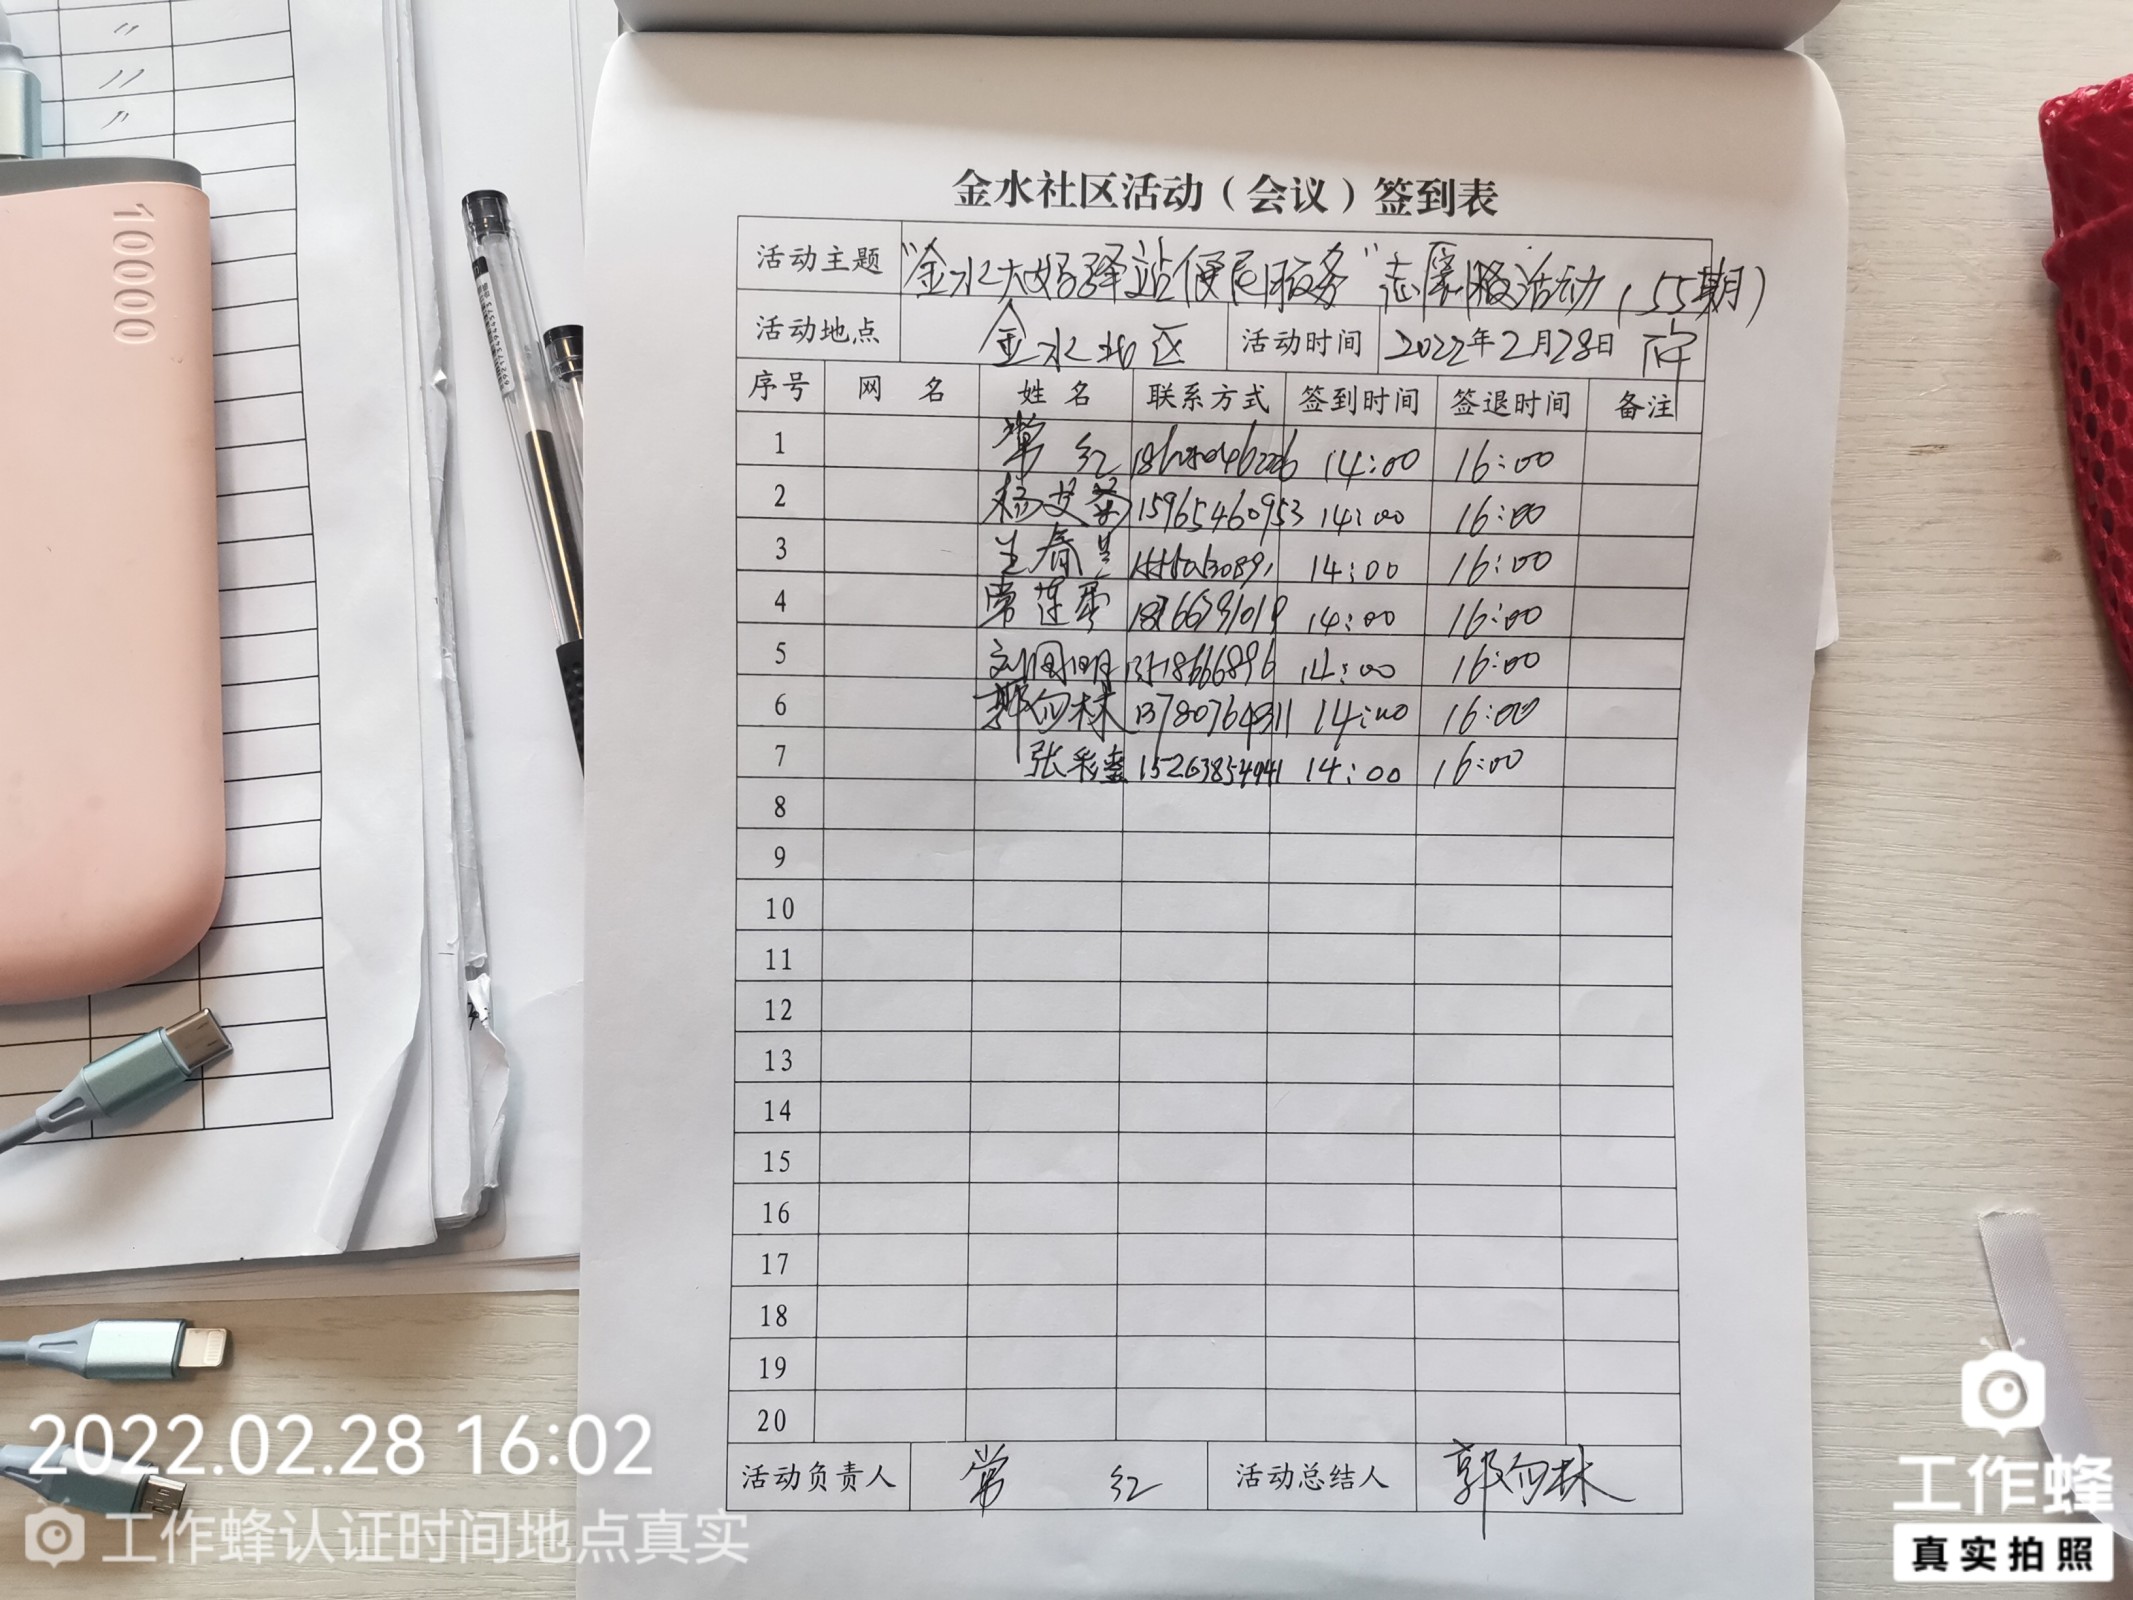 10000
金水社区活动（会议）签到表
活动主题 "金水大妈驿站便民服务"志愿服务活动（55期）
活动地点 金水北区 活动时间 2022年2月28日 下午
序号 网 名 姓 名 联系方式 签到时间 签退时间 备注
1 常 红 14:00 16:00
2 杨 15965460953 14:00 16:00
3 春 14:00 16:00
4 常莲 14:00 16:00
5 刘国明 14:00 16:00
6 郭向林 13780764311 14:00 16:00
7 张彩 14:00 16:00
8
9
10
11
12
13
14
15
16
17
18
19
20
活动负责人 常 红 活动总结人 郭向林
2022.02.28 16:02
工作蜂认证时间地点真实
工作蜂
真实拍照